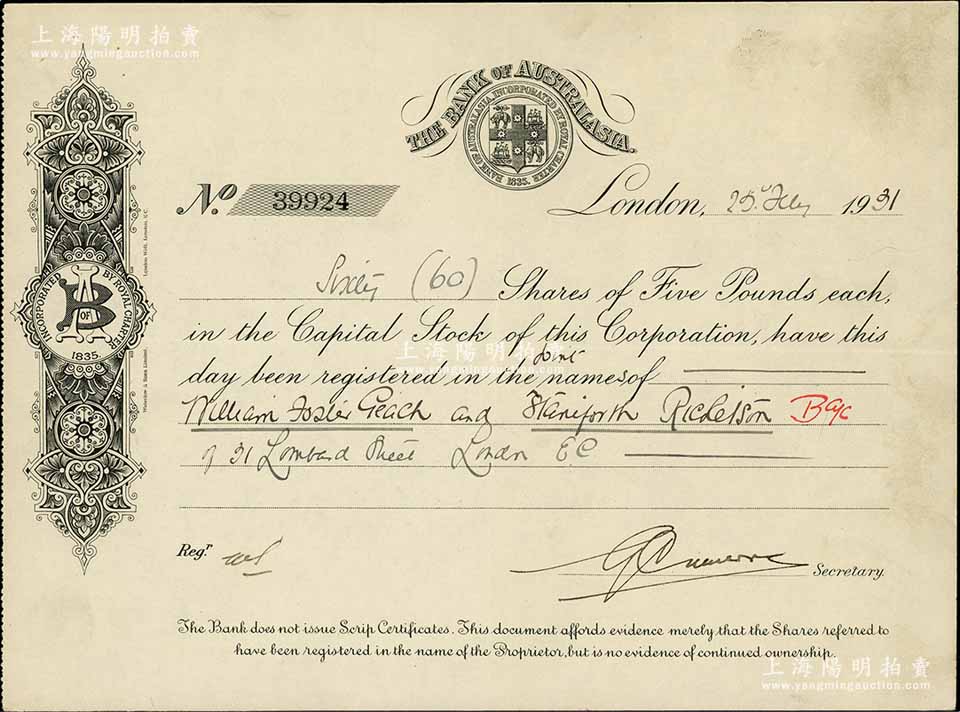 上海陽明拍賣
www.yangmingauction.com
THE BANK OF AUSTRALASIA.
BANK OF AUSTRALASIA, INCORPORATED BY ROYAL CHARTER
1835.
No. 39924
London, 25 1931
Sixty (60) Shares of Five Pounds each,
in the Capital Stock of this Corporation, have this
上海陽明拍賣
www.yangmingauction.com
joint
day been registered in the names of
William Foster Geach and Staniforth Ricketson
of 31 Lombard Street London EC
INCORPORATED BY ROYAL CHARTER
BA
OF
1835.
Waterlow & Sons Limited, London Wall, London, E.C.
Regr.
Secretary.
The Bank does not issue Scrip Certificates. This document affords evidence merely that the Shares referred to
have been registered in the name of the Proprietor, but is no evidence of continued ownership.
上海陽明拍賣
www.yangmingauction.com